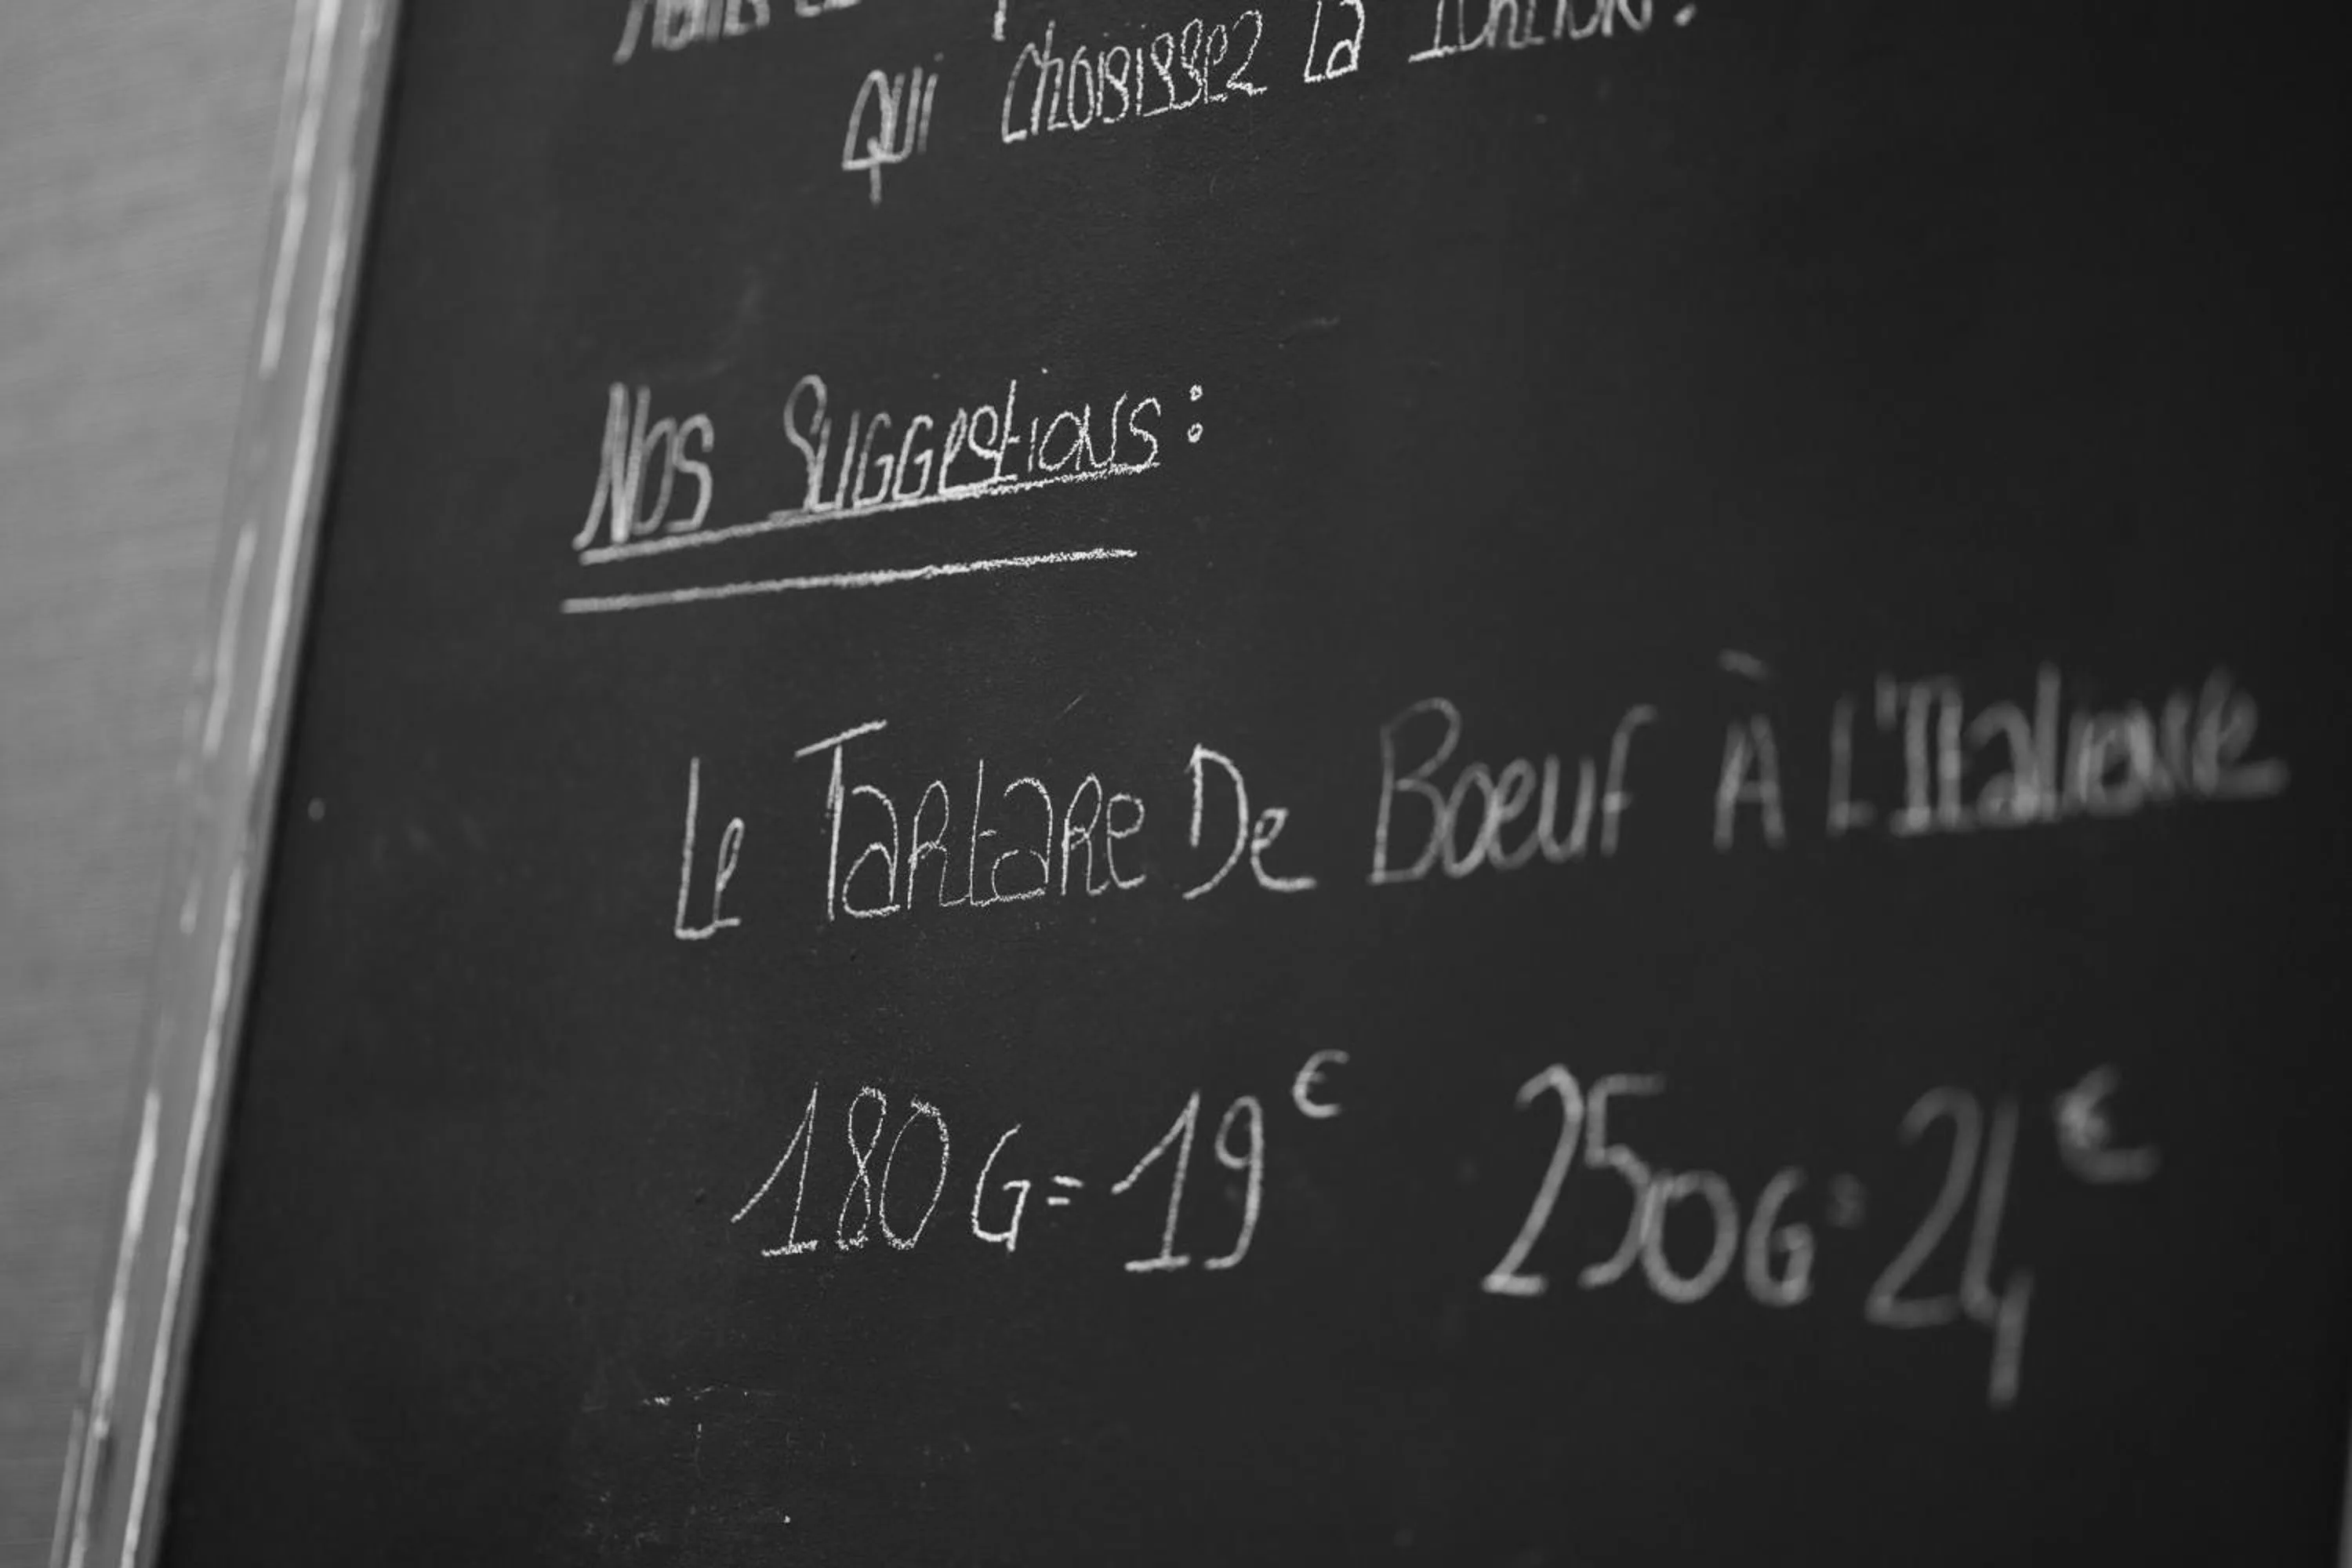 QUI CHOISISSEZ La
Nos Suggestions :
Le Tartare De Boeuf À L'Italienne
180 G = 19 € 250 G = 24 €